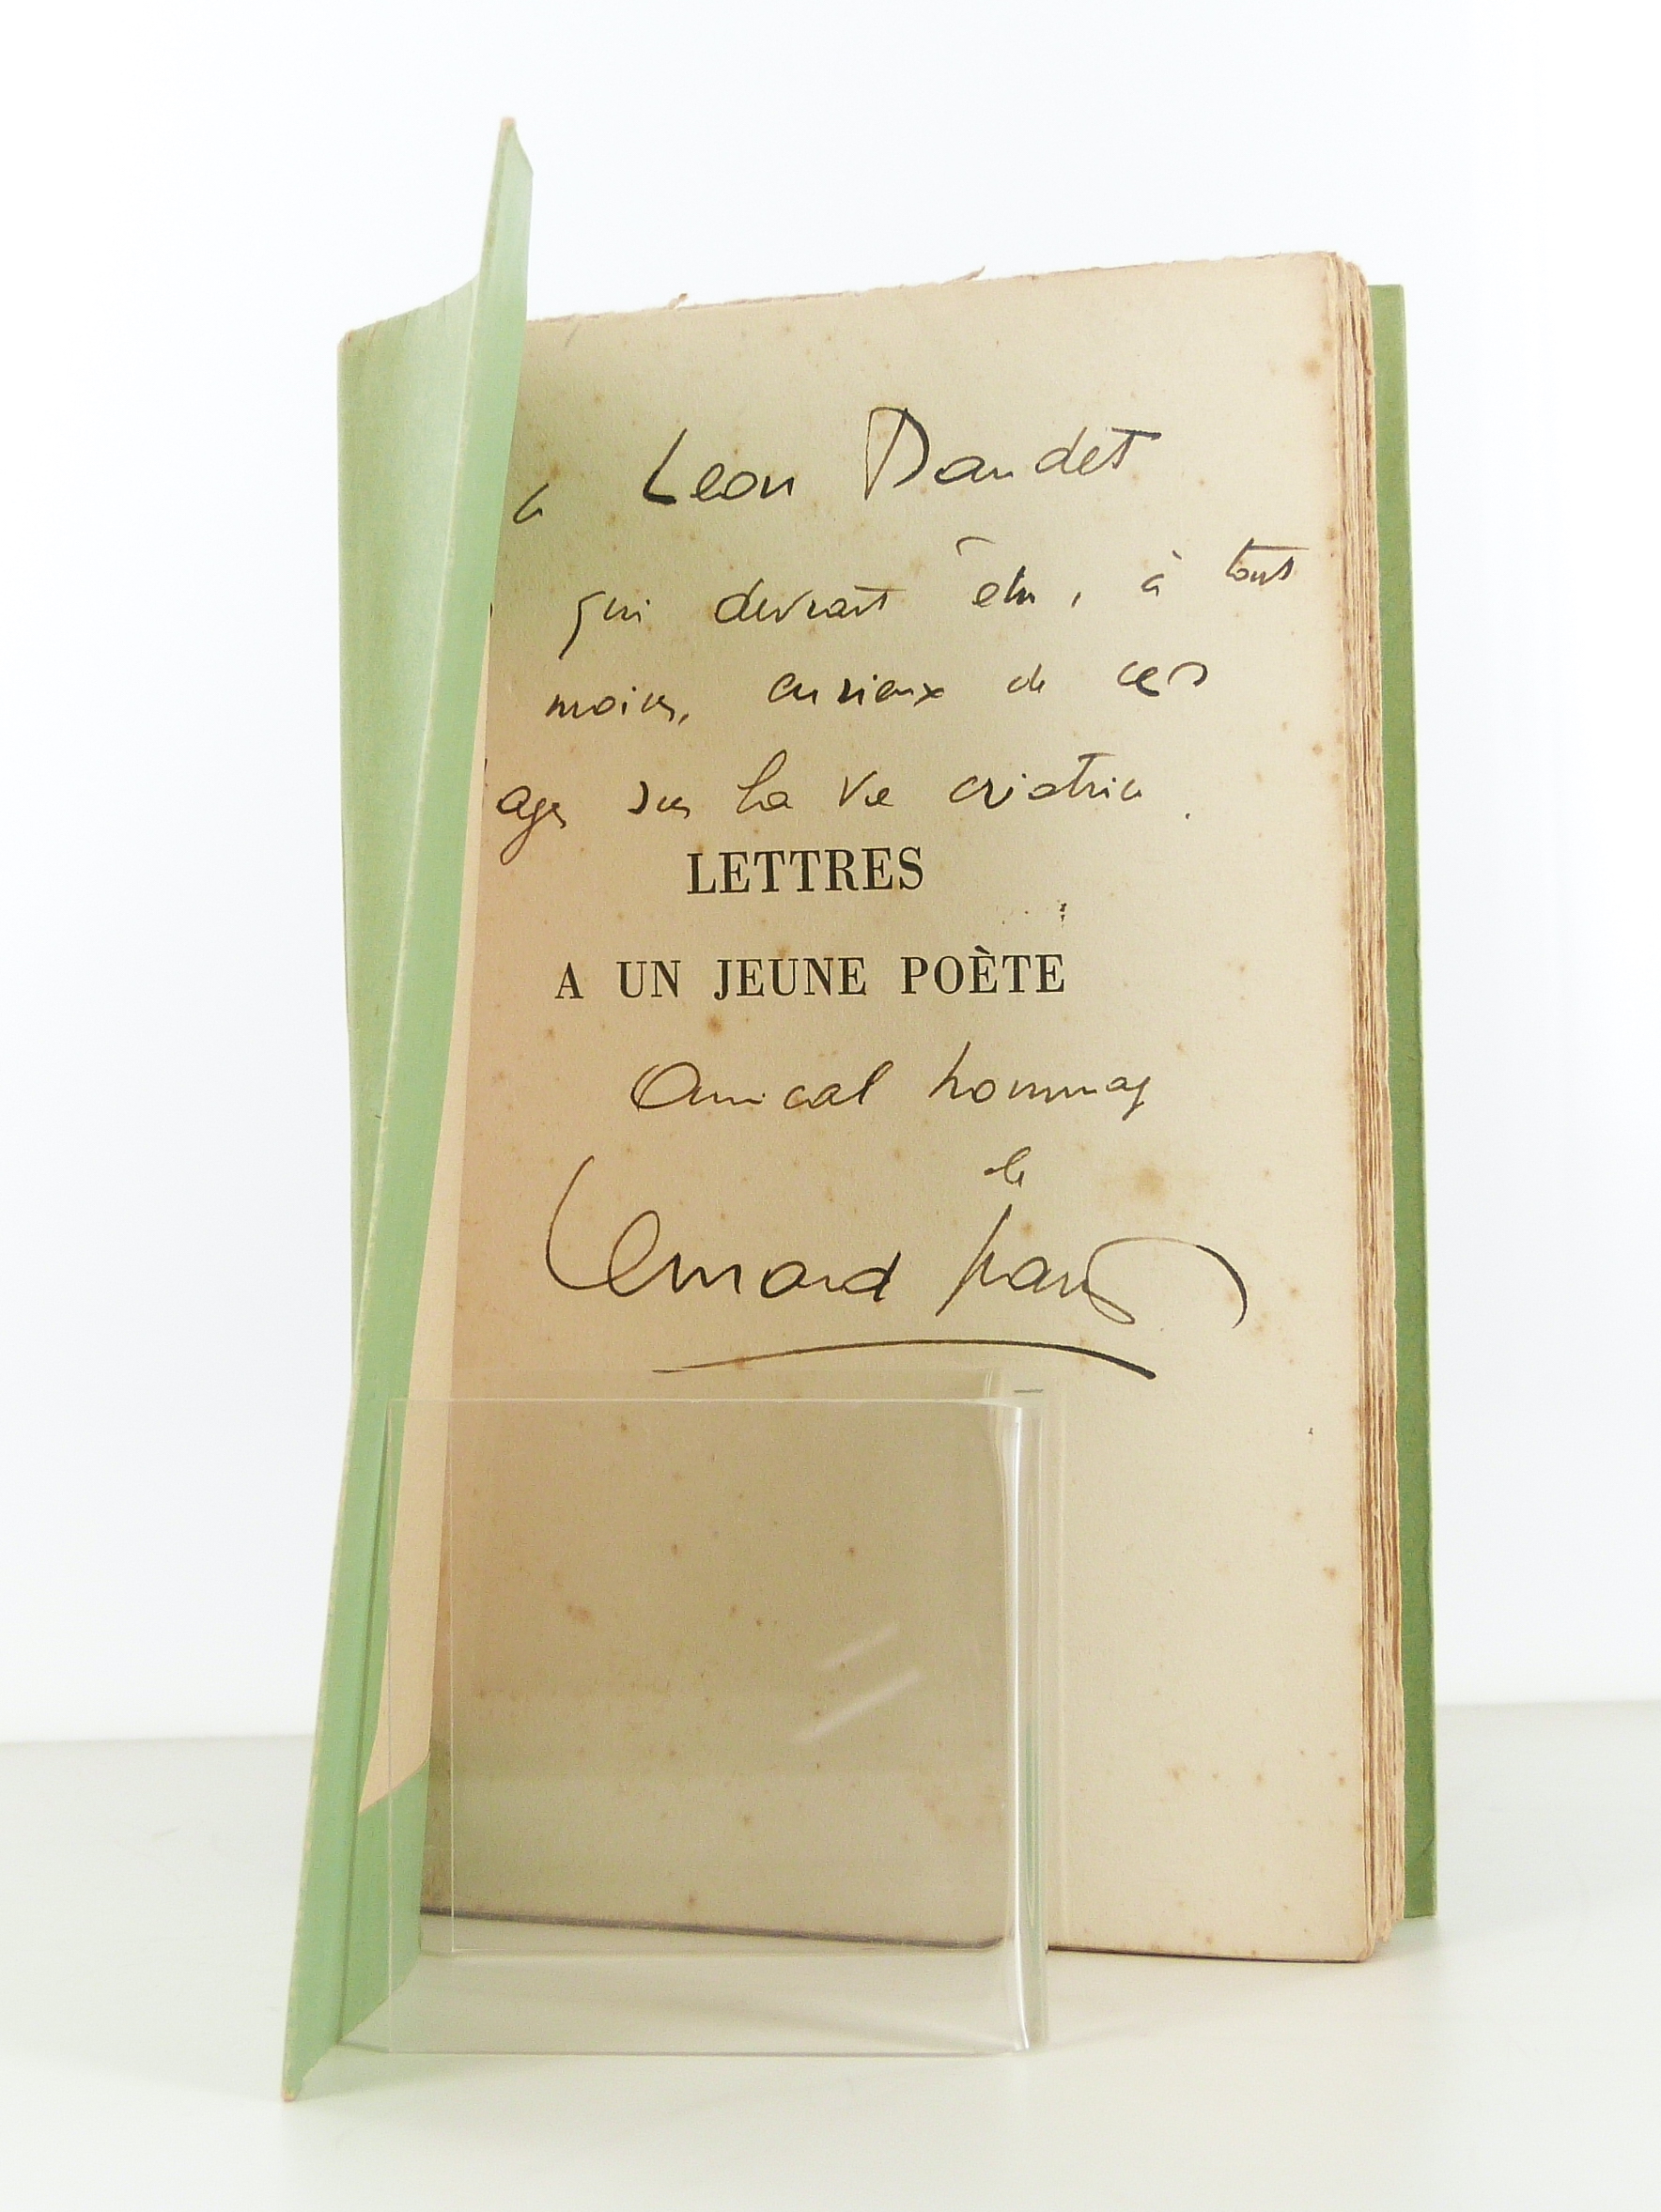 à Leon Daudet
qui devrait être, à tout
moins, curieux de ces
ages sur la vie créatrice.
LETTRES
A UN JEUNE POÈTE
Amical hommage
de
Bernard Grasset